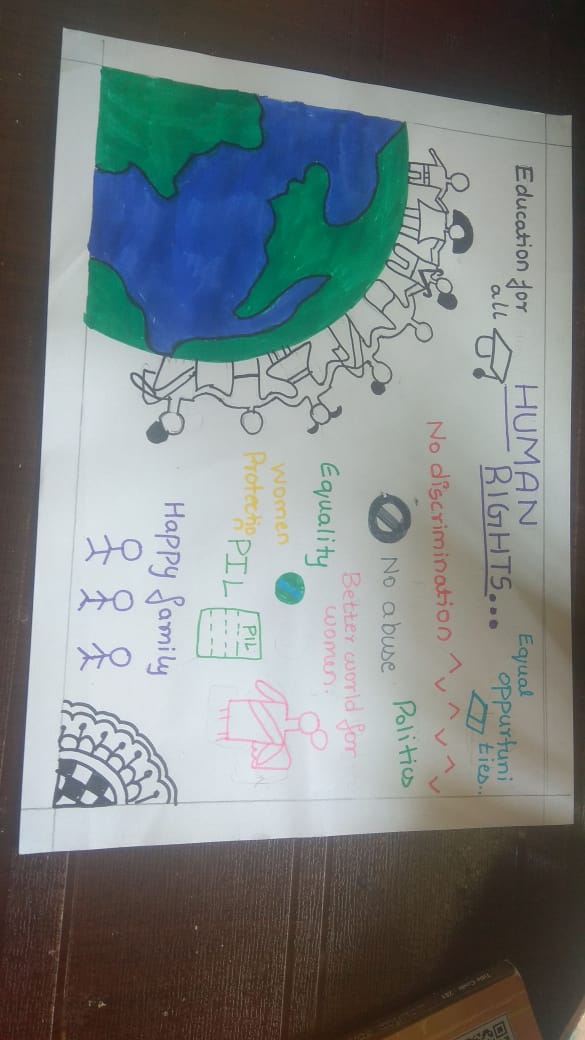 Education for
all
HUMAN
RIGHTS...
Equal
oppurtuni
ties..
No discrimination
No abuse
Politics
Equality
Better world for
women.
women
Protectio
n
PIL
PIL
Happy family